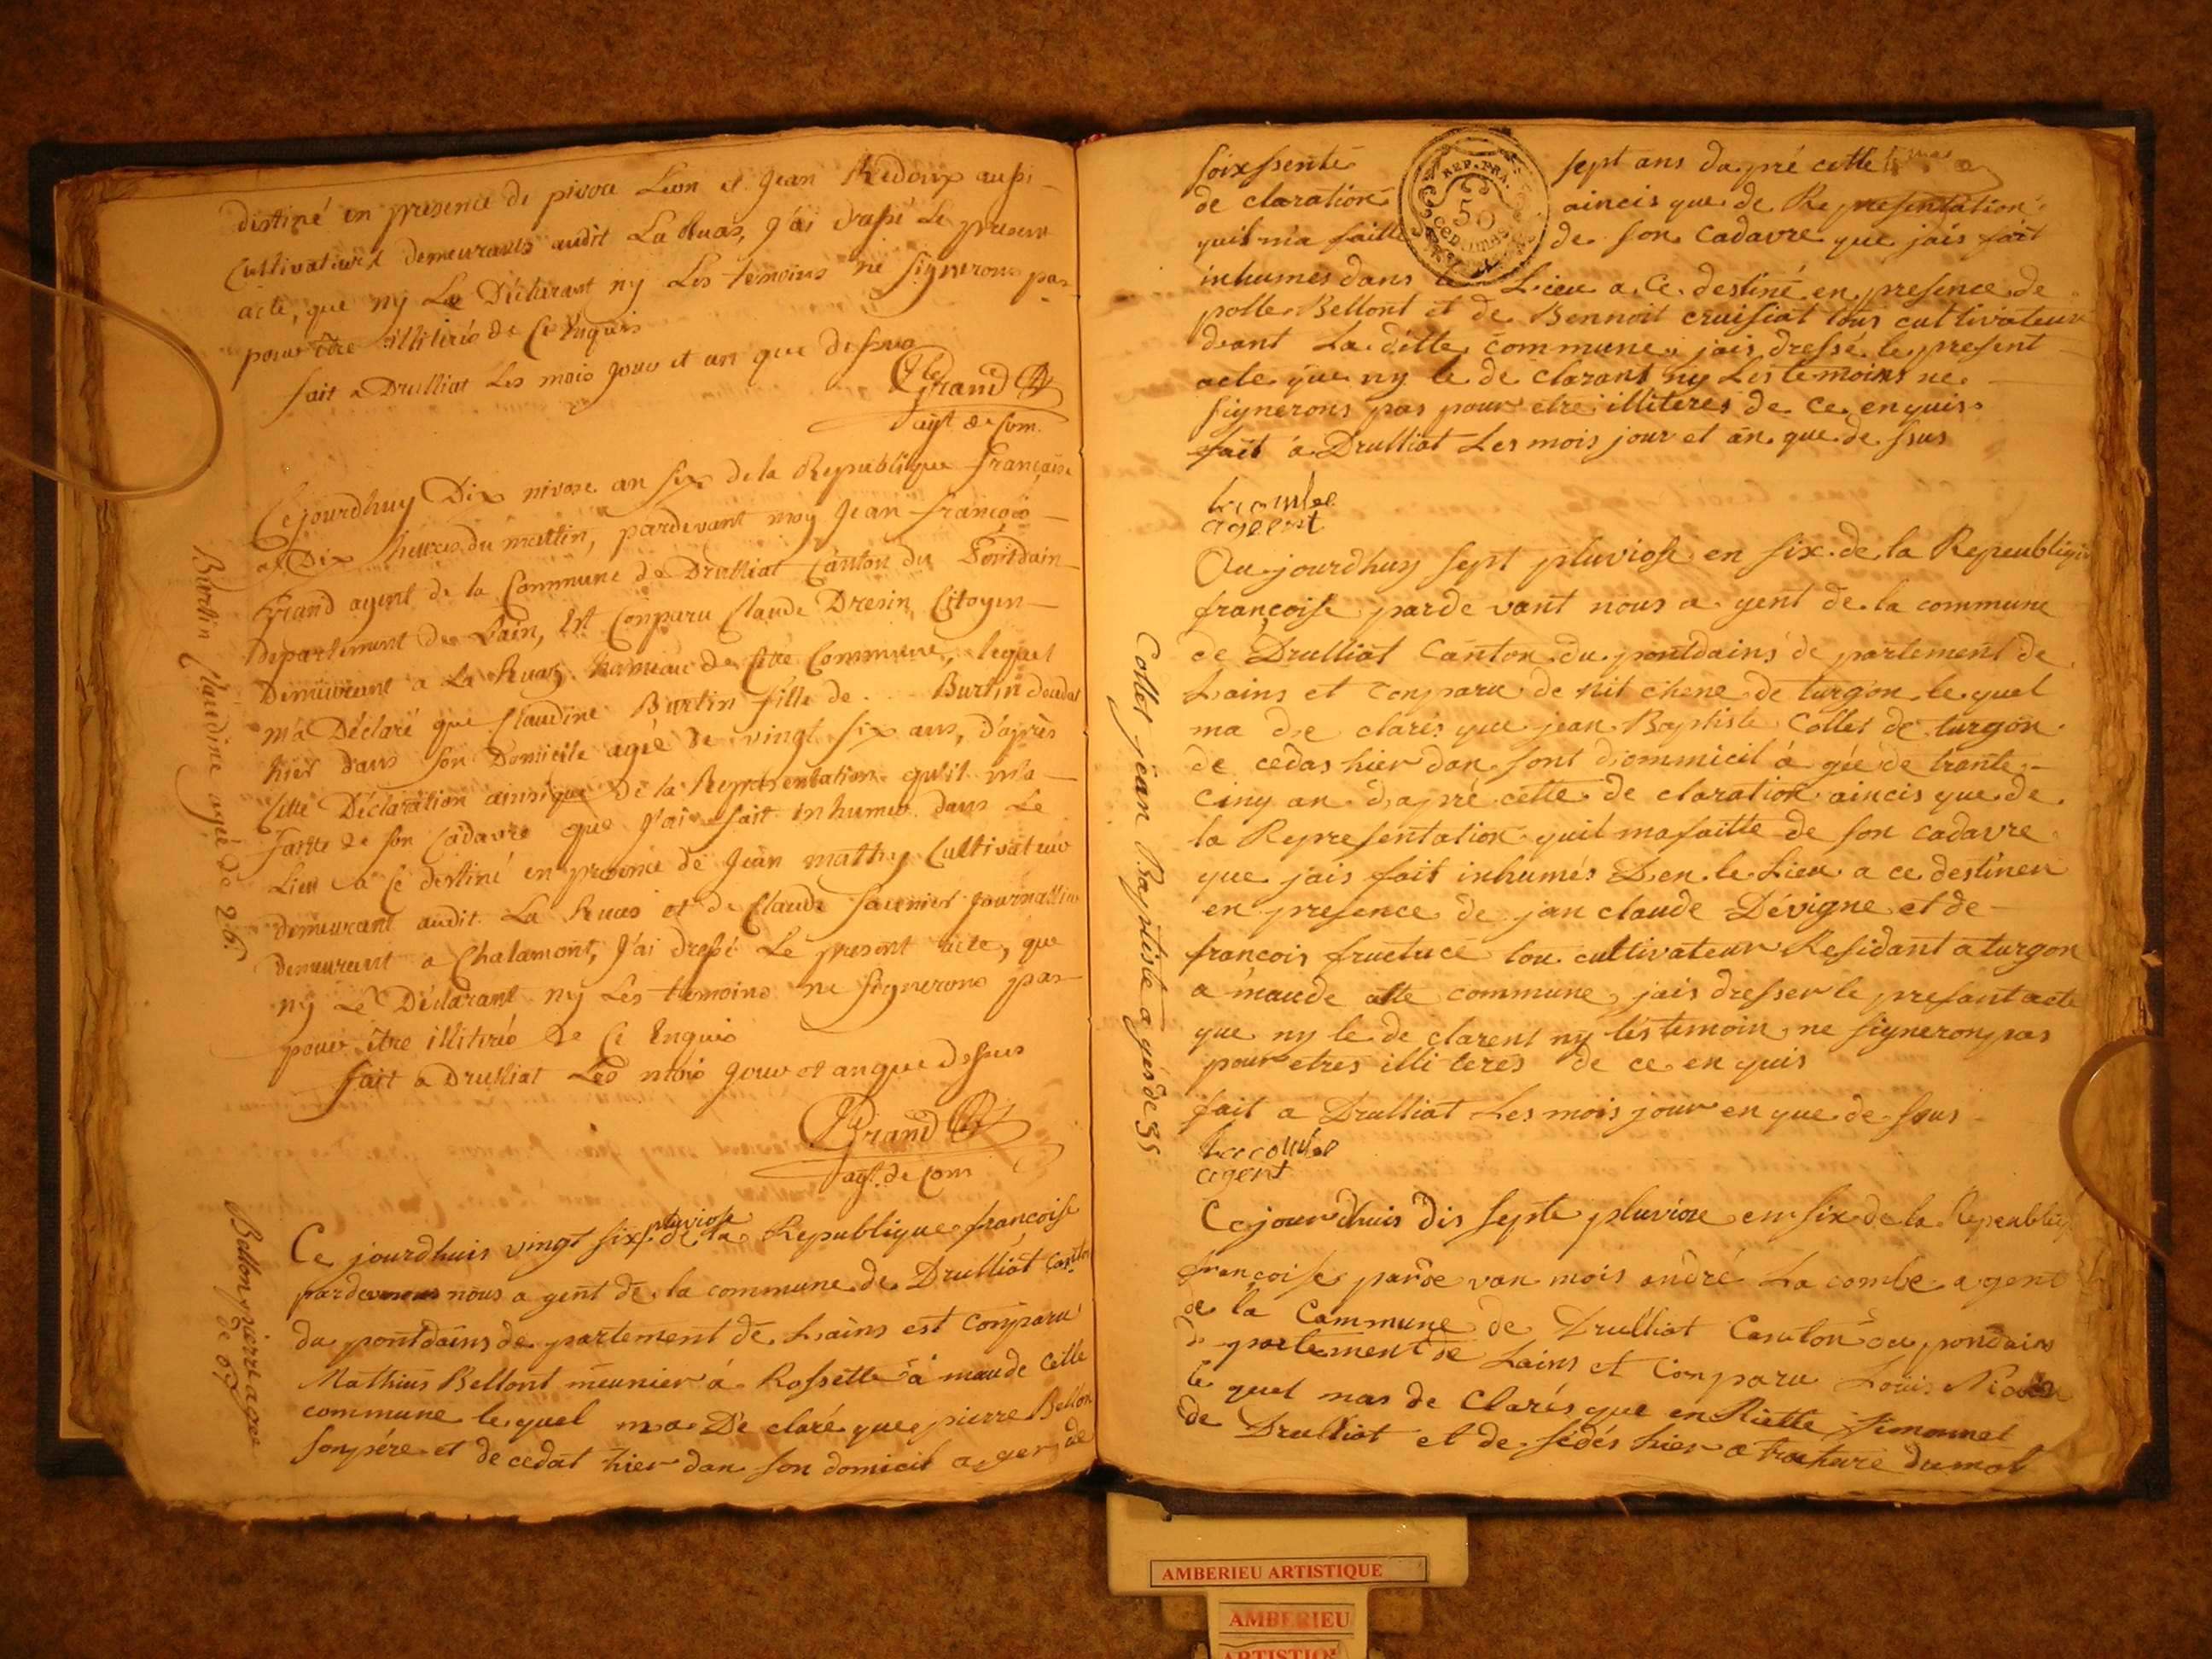 distiné en presence de pierre Leon et Jean Redoux aussi
Cultivateurs demeurants audit La Ruas, J'ai drassé Le present
acte, que ny Le Déclarant ny Les temoins ne signerons pas
pour être illitirés de Ce Enquis
fait a Drulliat Les mois Jour et an que dessus
Grand
agt. de Com.
Cejourdhuy Dix nivose an Six de la Republique française
a Dix heures du mattin, pardevant moy Jean françois
Grand agent de la Commune de Drulliat Canton du Pontdain
Departement de Lain, Est Conparu Claude Dresin Citoyen
Demeurent a La Ruas hameau de sete Commune, lequel
m'a Déclaré que Claudine Burtin fille de Burtin decedat
hier dans son Domicile agée de vingt six ans, d'après
Cette Déclaration ainsique de la Representation qu'il m'a
faitte de son Cadavre que J'ai fait inhumer dans Le
Lieu a Ce destiné en presence de Jean mathy Cultivateur
demeurant audit La Ruas et de Claude Saunier Journallier
demeurent a Chalamont, J'ai dressé Le present acte, que
ny Le Déclarant ny Les temoins ne signerons pas
pour être illitirés de Ce Enquis
fait a Drulliat Les mois Jour et an que Dessus
Grand
agt. de Com
Burtin Claudine agée de 26.
Ce jourdhuis vingt six pluviose de la Republique françoise
pardevant nous a gent de la commune de Drulliat canton
du pontdains de partement de Lains est Conparu
Mathius Bellont meunier á Rossette á maude Cette
commune le quel ma Dé claré que pierre Bellon
son pére et de cedat hier dan son domicil a ger de
Bellon pierre a gee de 67
soixssente sept ans da pré cette
de claration aincis que de Representation
quil ma faitte de son cadavre que jais fait
inhumes dans le Lieu a Ce destiné en presence de
polle Bellont et de Bennoit cruisiat tous cultivateur
deant La ditte commune jais dressé le present
acte que ny le de clarant ny Les temoins ne
signerons pas pour etre illiteres de Ce enquis
fait á Drulliat Les mois jour et án que de ssus
Lacombe
ageent
Au jourdhuy sept pluviose en six de la Repeublique
françoise parde vant nous a gent de la commune
de Drulliat Canton du pontdains de partement de
Lains et Conparu de nit chene de turgon le quel
ma de clares que jean Baptiste Collet de turgon
de cedas hier dan sont dommicil á gée de trante
Cinq an dapré cette de claration aincis que de
la Representation quil ma faitte de son cadavre
que jais fait inhumés Den le Lieu a ce destinen
en presence de jan claude Dévigne et de
francois fructuce tou cultivateur Residant a turgon
a maude atte commune jais dresser le presant acte
que ny le de clarent ny les temoin ne signeron pas
pour etres illi teres de ce en quis
fait a Drulliat Les mois jour en que de ssus
Lacombe
agent
Collet jean Baptiste a gés de 35
Ce jour dhuis dis septe pluviose en six de la Repeablique
françoise parde van mois andré La combe a gent
de la Commune de Drulliat Canton du pondains
de partement de Lains et Conparu Louis
le quel mas de Clarés que en Riette simonnet
de Drulliat et de sédés hier a
REP. FRA.
50
CENTIMES
AMBERIEU ARTISTIQUE
AMBERIEU
ARTISTIQUE